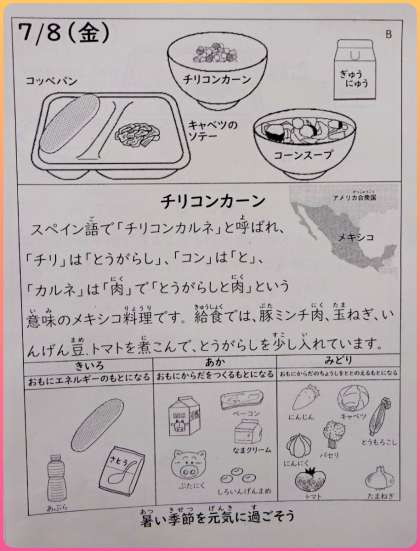 7/8(金)
B
コッペパン
チリコンカーン
ぎゅうにゅう
キャベツのソテー
コーンスープ
チリコンカーン
アメリカ合衆国
メキシコ
スペイン語で「チリコンカルネ」と呼ばれ、
「チリ」は「とうがらし」、「コン」は「と」、
「カルネ」は「肉」で「とうがらしと肉」という
意味のメキシコ料理です。給食では、豚ミンチ肉、玉ねぎ、い
んげん豆、トマトを煮こんで、とうがらしを少し入れています。
きいろ
おもにエネルギーのもとになる
あぶら
さとう
あか
おもにからだをつくるもとになる
ベーコン
なまクリーム
ぶたにく
しろいんげんまめ
みどり
おもにからだのちょうしをととのえるもとになる
にんじん
キャベツ
とうもろこし
にんにく
パセリ
トマト
たまねぎ
暑い季節を元気に過ごそう